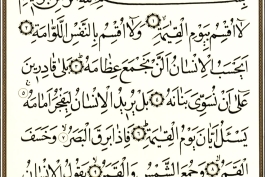 لَا أُقْسِمُ بِيَوْمِ الْقِيَٰمَةِ ۝١ وَلَا أُقْسِمُ بِالنَّفْسِ اللَّوَّامَةِ ۝٢
أَيَحْسَبُ الْإِنسَانُ أَلَّن نَّجْمَعَ عِظَامَهُ ۝٣ بَلَىٰ قَادِرِينَ
عَلَىٰ أَن نُّسَوِّيَ بَنَانَهُ ۝٤ بَلْ يُرِيدُ الْإِنسَانُ لِيَفْجُرَ أَمَامَهُ ۝٥
يَسْـَٔلُ أَيَّانَ يَوْمُ الْقِيَٰمَةِ ۝٦ فَإِذَا بَرِقَ الْبَصَرُ ۝٧ وَخَسَفَ
الْقَمَرُ ۝٨ وَجُمِعَ الشَّمْسُ وَالْقَمَرُ ۝٩ يَقُولُ الْإِنسَانُ